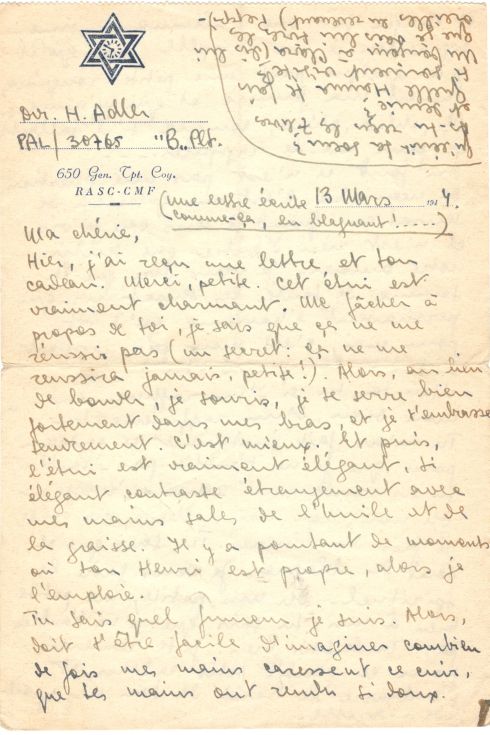 Dvr. H. Adler
PAL/30765 "B" Plt.
650 Gen. Tpt. Coy.
RASC-CMF
(une lettre écrite 13 Mars 1914.
comme-ça, en blaguant!.....)
Ma chérie,
Hier, j'ai reçu une lettre et ton
cadeau. Merci, petite. Cet étui est
vraiment charmant. Me fâcher à
propos de toi, je sais que ça ne me
réussit pas (un secret: ça ne me
reussira jamais, petite!). Alors, au lieu
de bouder, je souris, je te serre bien
fortement dans mes bras, et je t'embrasse
tendrement. C'est mieux. Et puis,
l'étui est vraiment élégant, si
élégant contraste étrangement avec
mes mains sales de l'huile et de
la graisse. Il y a pourtant de moments
où ton Henri est propre, alors je
l'emploie.
Tu sais quel fumeur je suis. Alors,
doit t'être facile d'imaginer combien
de fois mes mains caressent ce cuir,
que tes mains ont rendu si doux.
qu'écrit ta soeur?
As-tu reçu les
et
Quelle Hanna te fait
souvent visite?
Un bonjour à Clara (dis lui
que je
au revenant) Peppi-